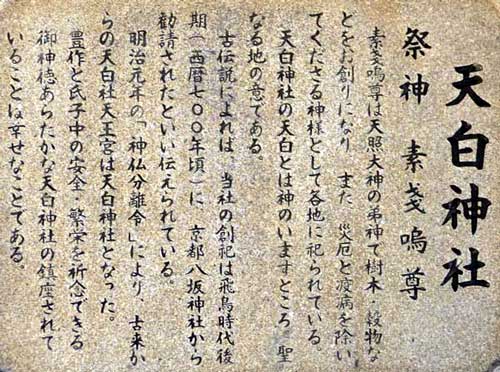 天白神社
祭神 素戔嗚尊
素戔嗚尊は天照大神の弟神で樹木・穀物な
とをお創りになり また 災厄と疫病を除い
てくださる神様として各地に祀られている。
天白神社の天白とは神のいますところ 聖
なる地の意である。
古伝説によれは、当社の創祀は飛鳥時代後
期(西暦七〇〇年頃)に、京都八坂神社から
勧請されたといい伝えられている。
明治元年の「神仏分離令」により 古来か
らの天白社天王宮は天白神社となった。
豊作と氏子中の安全・繁栄を祈念できる
御神徳あらたかな天白神社の鎮座されて
いることは幸せなことである。